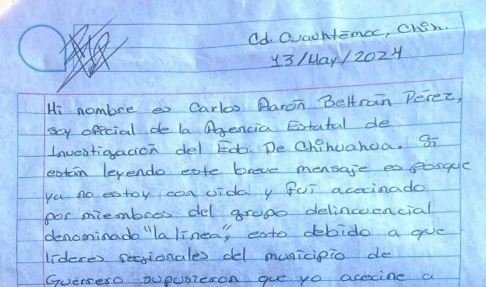 Cd. Cuauhtemoc, Chih.
13/May/2024
Mi nombre es Carlos Aarón Beltrán Pérez,
soy oficial de la Agencia Estatal de
Investigación del Edo. De Chihuahua. Si
están leyendo este breve mensaje es porque
ya no estoy con vida y fui acecinado
por miembros del grupo delincuencial
denominado "la linea", esto debido a que
líderes regionales del municipio de
Guerrero supusieron que yo acecine a